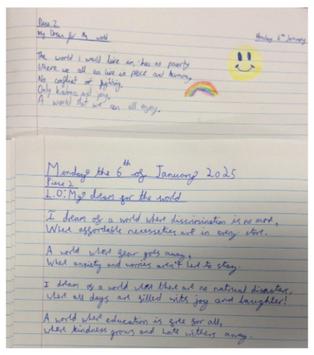 Piece 2
My Dream for the world
Monday 6th January
The world I would live in, has no poverty
Where we all can live in peace and harmony,
No conflict or fighting,
Only kindness and joy,
A world that we can all enjoy.
Monday the 6th of January 2025
Piece 2
L.O: My dream for the world
I dream of a world where discrimination is no more,
Where affordable necessities are in every store.
A world where fear goes away,
Where anxiety and worries aren't led to stay.
I dream of a world where there are no natural disasters,
Where all days are filled with joy and laughter!
A world where education is free for all,
Where kindness grows and hate withers away.